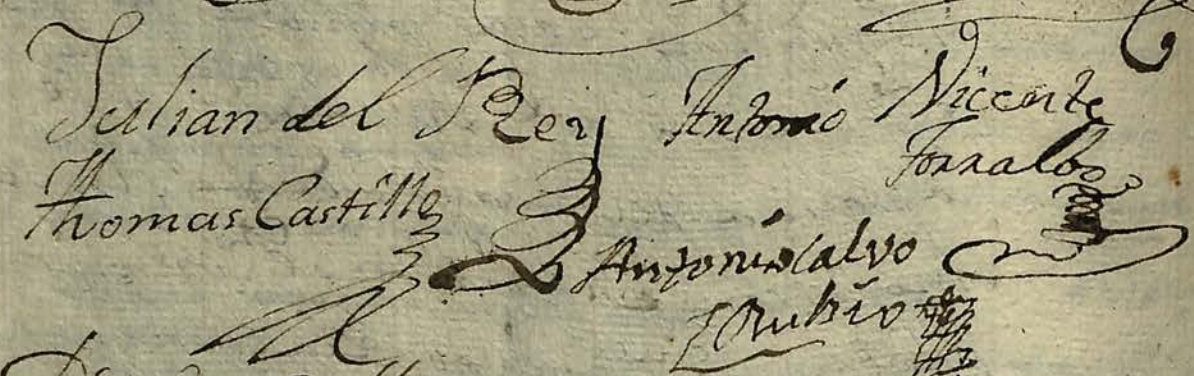 Julian del Rey Antonio Vicente
Torralbo
Thomas Castillo
Antonio Calvo
Rubio